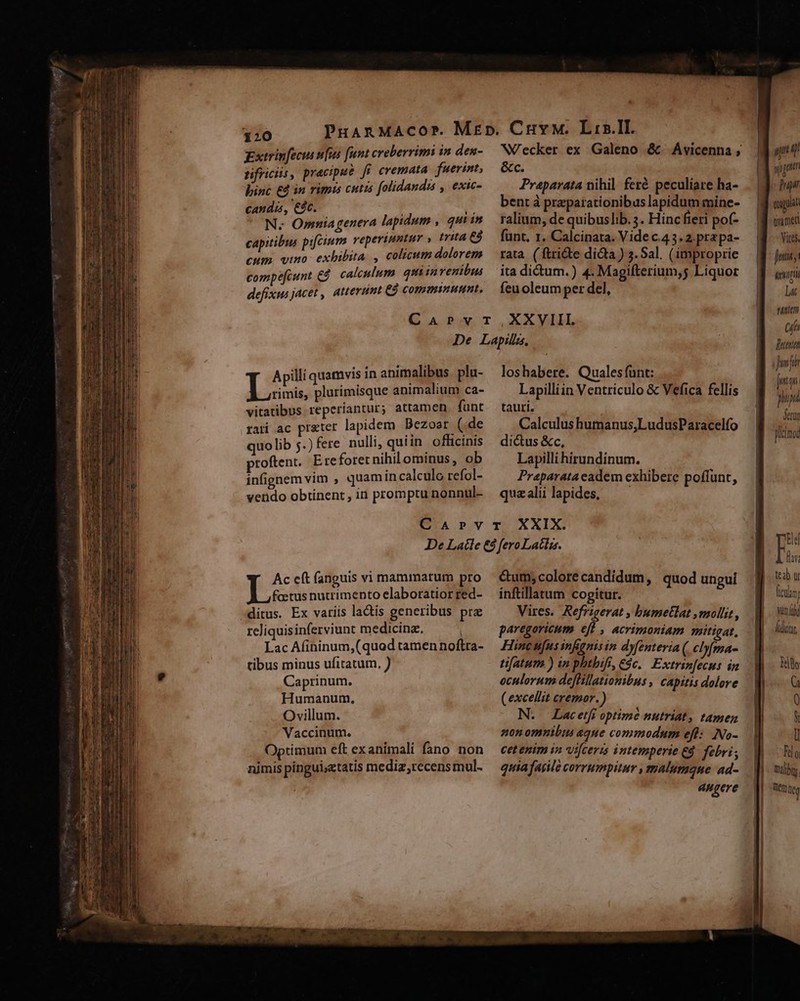 120 PHARMACOP. MED. CHYM. LIB.II.
Extrinſecus uſus ſunt creberrimi in den-
tifriciis, præcipuè ſi cremata fuerint,
hinc & in rimis cutis ſolidandis, exic-
candis, &c.
N. Omnia genera lapidum, qui in
capitibus piſcium reperiuntur, trita &
cum vino exhibita, colicum dolorem
compeſcunt & calculum qui in renibus
defixus jacet, atterunt & comminuunt.
Wecker ex Galeno & Avicenna,
&c.
Præparata nihil ferè peculiare ha-
bent à præparationibus lapidum mine-
ralium, de quibus lib.3. Hinc fieri poſ-
ſunt. 1. Calcinata. Vide c.43. 2. præpa-
rata (ſtricte dicta) 3. Sal. (improprie
ita dictum.) 4. Magiſterium, 5 Liquor
ſeu oleum per del,
CAPVT XXVIII.
De Lapillis.
LApilli quamvis in animalibus plu-
rimis, plurimisque animalium ca-
vitatibus reperiantur; attamen ſunt
rari ac præter lapidem Bezoar (de
quo lib 5.) fere nulli, qui in officinis
proſtent. Ere foret nihilominus, ob
inſignem vim, quam in calculo reſol-
vendo obtinent, in promptu nonnul-
los habere. Quales ſunt:
Lapilli in Ventriculo & Veſica fellis
tauri.
Calculus humanus, Ludus Paracelſo
dictus &c,
Lapilli hirundinum.
Præparata eadem exhibere poſſunt,
quæ alii lapides,
CAPVT XXIX.
De Lacte & ſero Lactis.
LAc eſt ſanguis vi mammarum pro
fœtus nutrimento elaboratior red-
ditus. Ex variis lactis generibus præ
reliquis inſerviunt medicinæ.
Lac Aſininum, (quod tamen noſtra-
tibus minus uſitatum.)
Caprinum.
Humanum,
Ovillum.
Vaccinum.
Optimum eſt ex animali ſano non
nimis pingui, ætatis mediæ, recens mul-
ctum, colore candidum, quod ungui
inſtillatum cogitur.
Vires. Refrigerat, humectat, mollit,
paregoricum eſt, acrimoniam mitigat.
Hinc uſus inſignis in dyſenteria (clyſma-
tiſatum) in phthiſi, &c. Extrinſecus in
oculorum deſtillationibus, capitis dolore
(excellit cremor.)
N. Lac etſi optimè nutriat, tamen
non omnibus æque commodum eſt: No-
cet enim in viſceris intemperie & febri;
quia facile corrumpitur, malumque ad-
augere